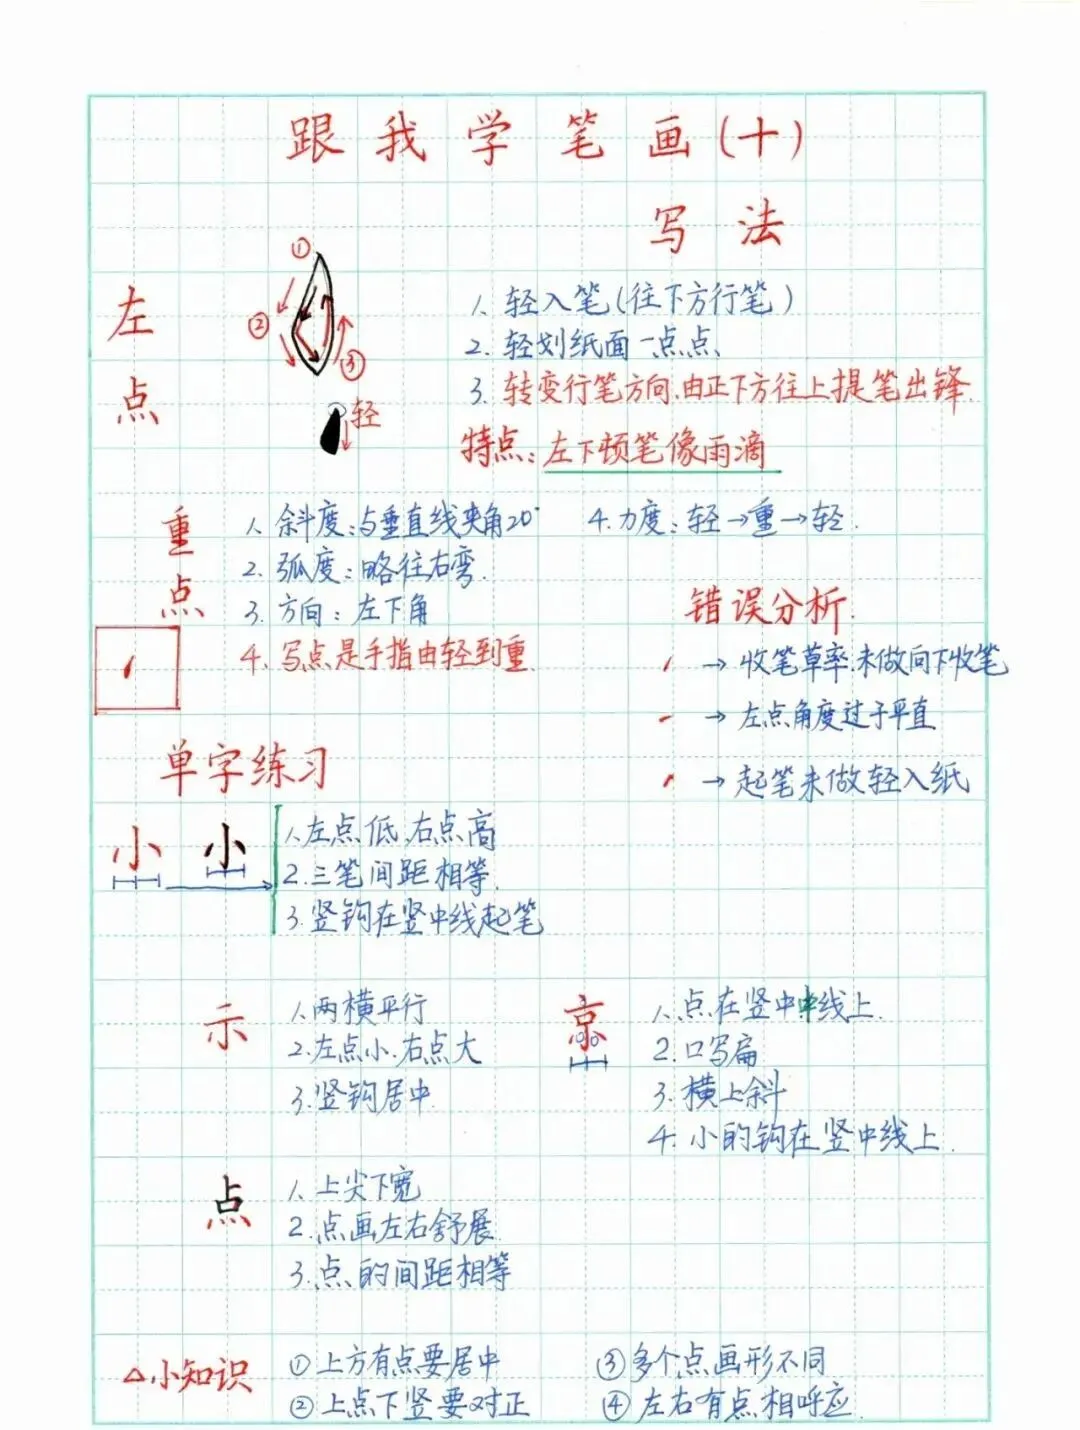 跟我学笔画(十)
写法
左点
①
②
③
轻
1. 轻入笔(往下方行笔)
2. 轻划纸面一点点、
3. 转变行笔方向.由正下方往上提笔出锋.
特点:左下顿笔像雨滴
重点
1. 斜度:与垂直线夹角20°
2. 弧度:略往右弯.
3. 方向:左下角
4. 写点是手指由轻到重.
4. 力度:轻→重→轻.
错误分析.
→ 收笔草率.未做向下收笔
→ 左点角度过于平直
→ 起笔未做轻入纸
单字练习
小 小
1. 左点低.右点高
2. 三笔间距相等.
3. 竖钩在竖中线起笔
示
1. 两横平行
2. 左点小.右点大
3. 竖钩居中.
京
1. 点在竖中中线上.
2. 口写扁
3. 横上斜
4. 小的钩在竖中线上.
点
1. 上尖下宽
2. 点画左右舒展.
3. 点的间距相等
△小知识
① 上方有点要居中
② 上点下竖要对正
③ 多个点画形不同
④ 左右有点相呼应.